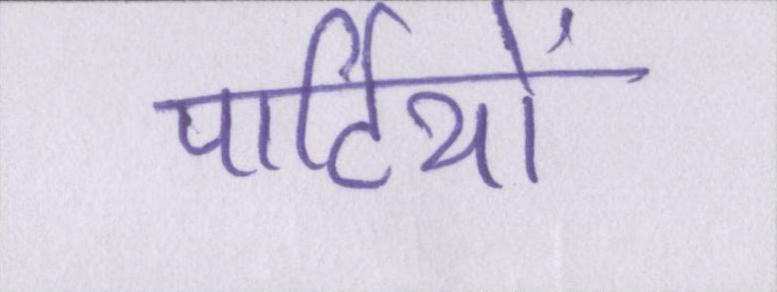 पार्टियों